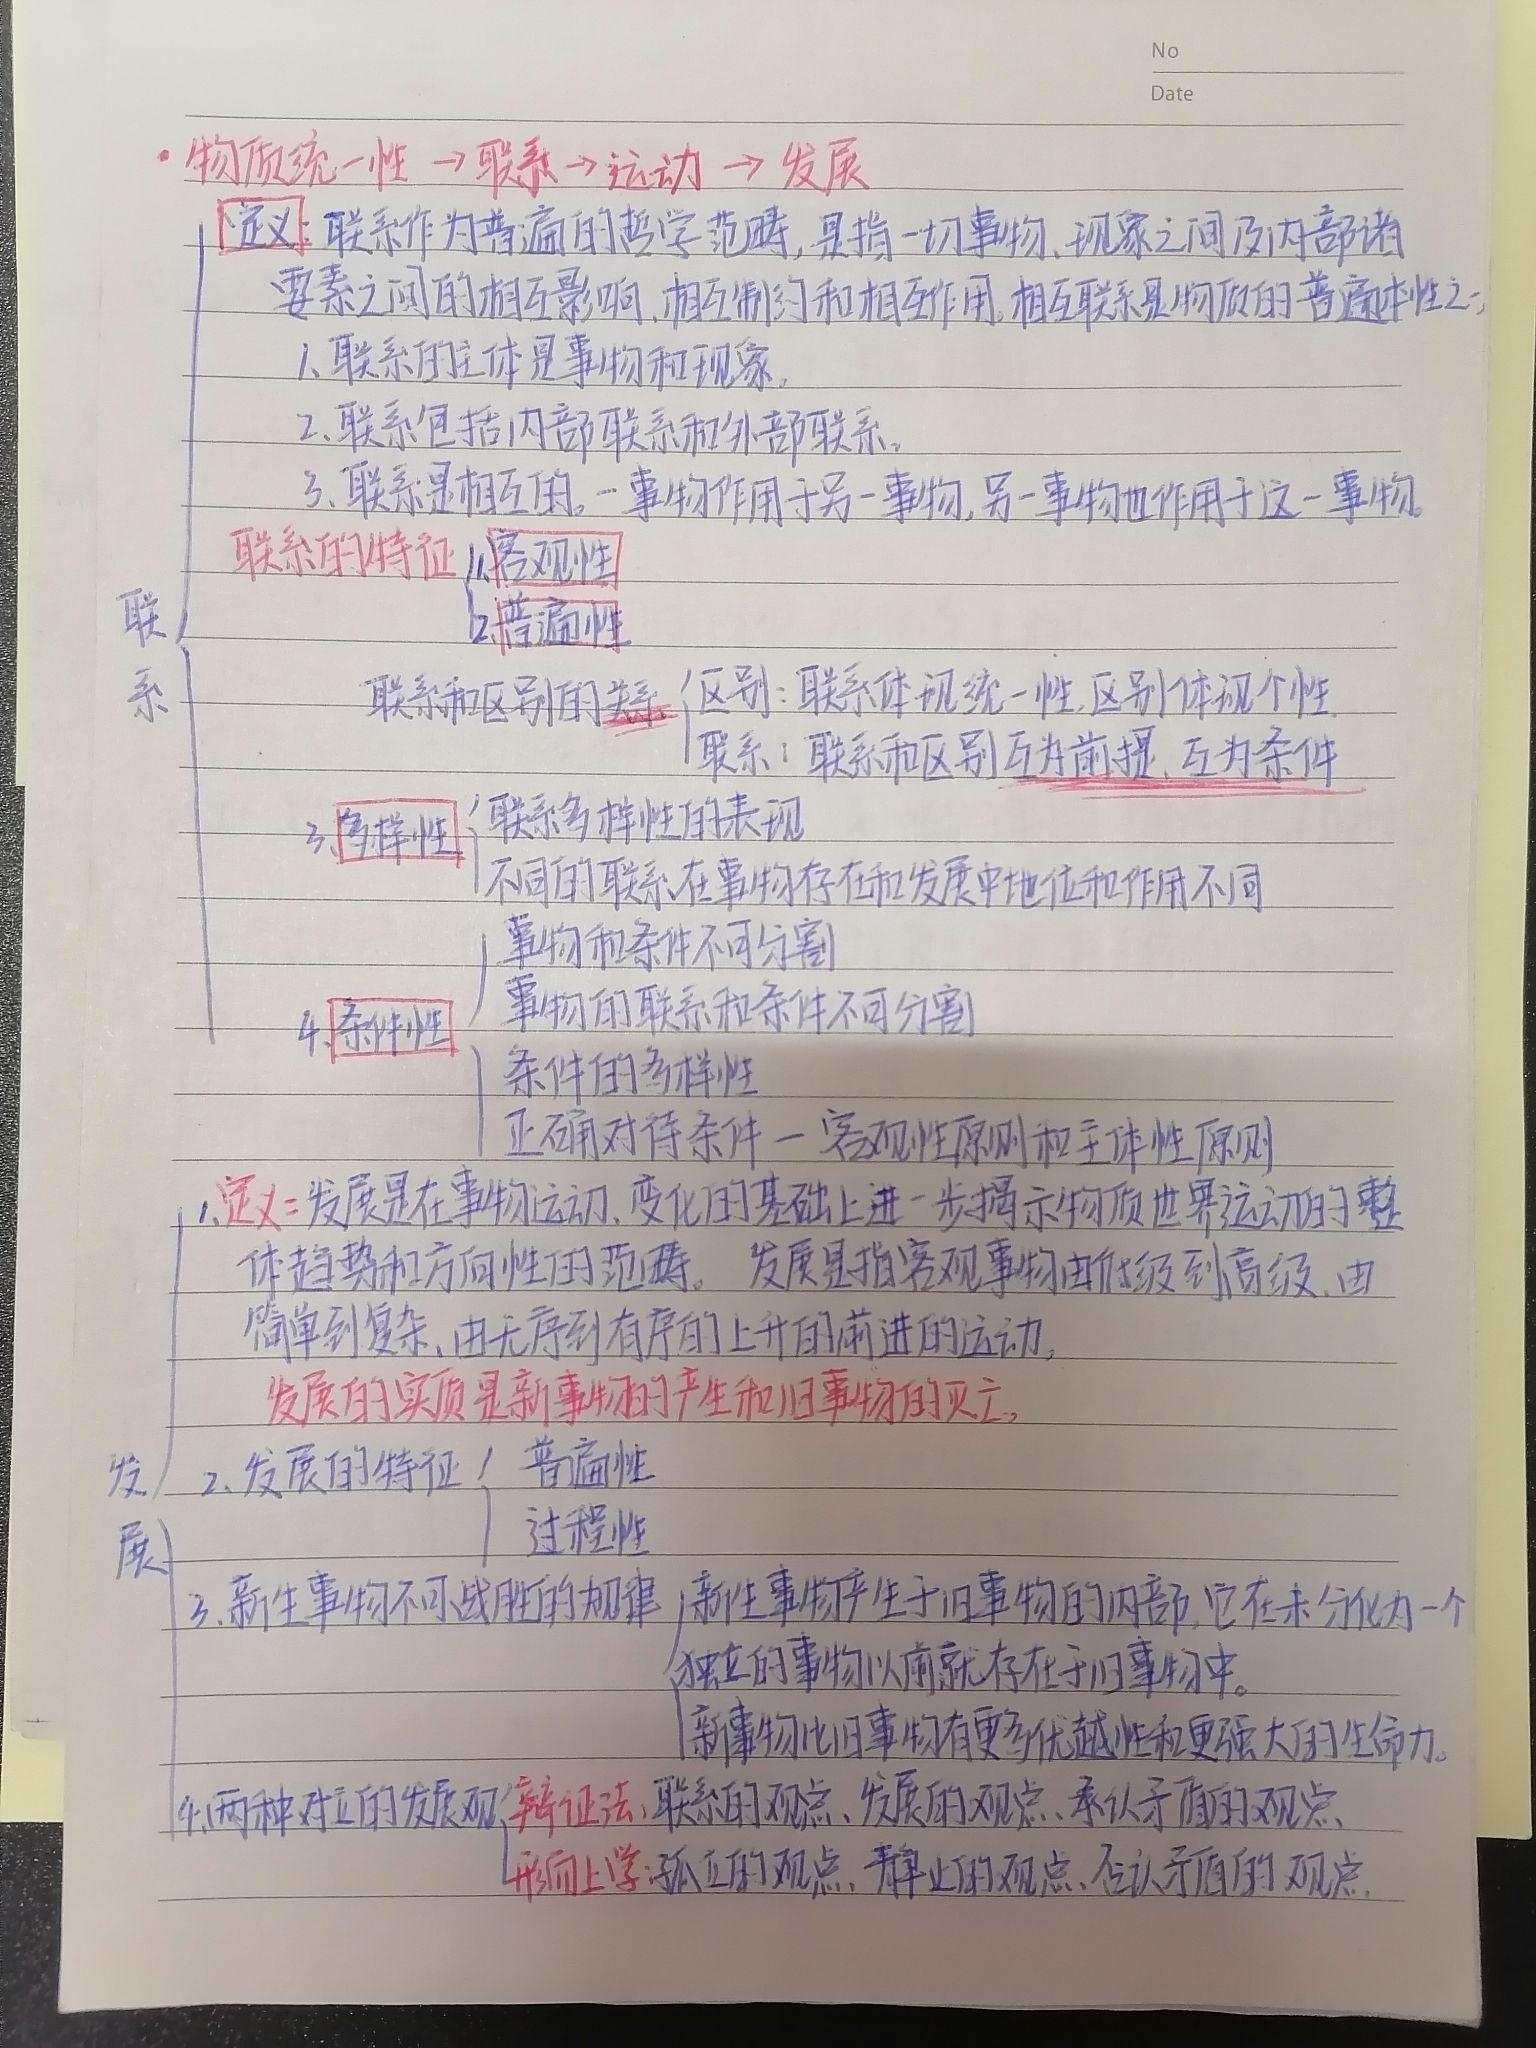 No
Date
·物质统一性→联系→运动→发展
定义:联系作为普遍的哲学范畴,是指一切事物、现象之间及内部诸
要素之间的相互影响、相互制约和相互作用。相互联系是物质的普遍本性之一。
1、联系的主体是事物和现象。
2、联系包括内部联系和外部联系。
3、联系是相互的。一事物作用于另一事物,另一事物也作用于这一事物。
联系的特征 1、客观性
2、普遍性
联系
联系和区别的关系 区别:联系体现统一性,区别体现个性
联系:联系和区别互为前提、互为条件
3、多样性 联系多样性的表现
不同的联系在事物存在和发展中地位和作用不同
事物和条件不可分割
事物的联系和条件不可分割
4、条件性
条件的多样性
正确对待条件—客观性原则和主体性原则
1、定义:发展是在事物运动、变化的基础上进一步揭示物质世界运动的整
体趋势和方向性的范畴。 发展是指客观事物由低级到高级、由
简单到复杂、由无序到有序的上升的前进的运动。
发展的实质是新事物的产生和旧事物的灭亡。
发展
2、发展的特征 普遍性
过程性
3、新生事物不可战胜的规律 新生事物产生于旧事物的内部,它在未分化为一个
独立的事物以前就存在于旧事物中。
新事物比旧事物有更多优越性和更强大的生命力。
4、两种对立的发展观 辩证法:联系的观点、发展的观点、承认矛盾的观点、
形而上学:孤立的观点、静止的观点、否认矛盾的观点、